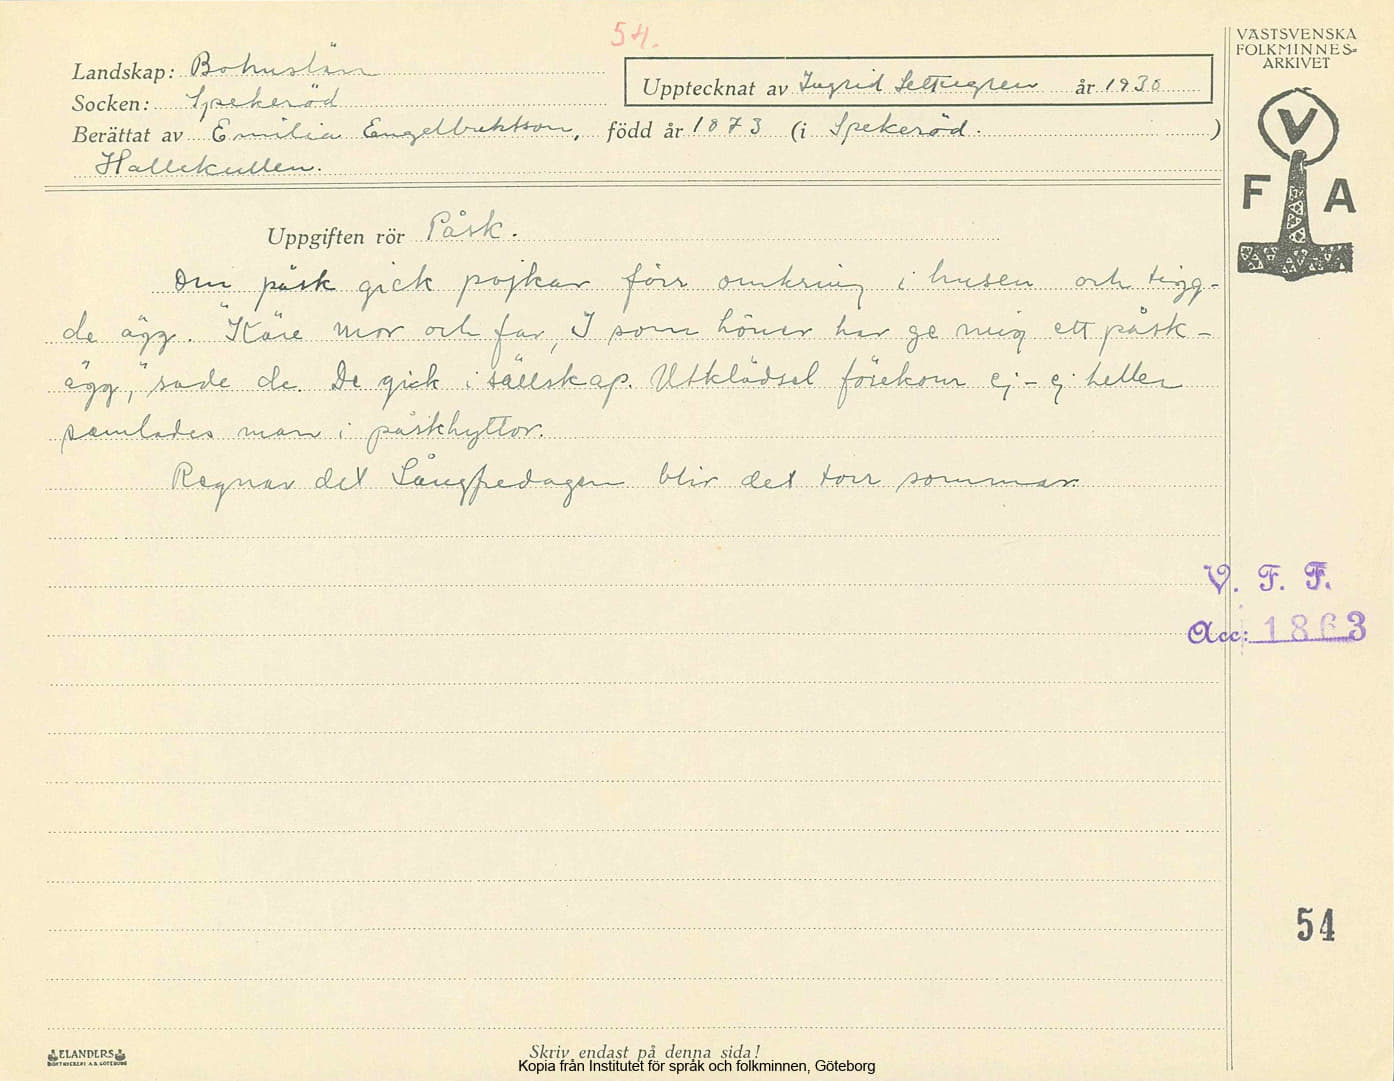 54.
VÄSTSVENSKA
FOLKMINNES-
ARKIVET
Landskap: Bohuslän
Upptecknat av Ingrid år 1930
Socken: Spekeröd
Berättat av Emilia Engelbrektson, född år 1873 (i Spekeröd. )
Hallekullen.
V
F A
Uppgiften rör Påsk.
Om påsk gick pojkar förr omkring i husen och tigg-
de ägg. "Käre mor och far, I som höner har ge mig ett påsk-
ägg," sade de. De gick i sällskap. Utklädsel förekom ej - ej heller
samlades man i påskhyttor.
Regnar det Långfredagen blir det torr sommar.
V. F. F.
Acc: 1863
54
ELANDERS
BOKTRYCKERI A.B. GÖTEBORG
Skriv endast på denna sida!
Kopia från Institutet för språk och folkminnen, Göteborg